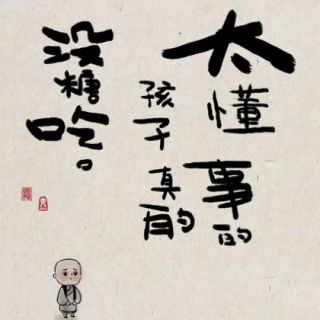 太懂事的
孩子真的
没糖吃。